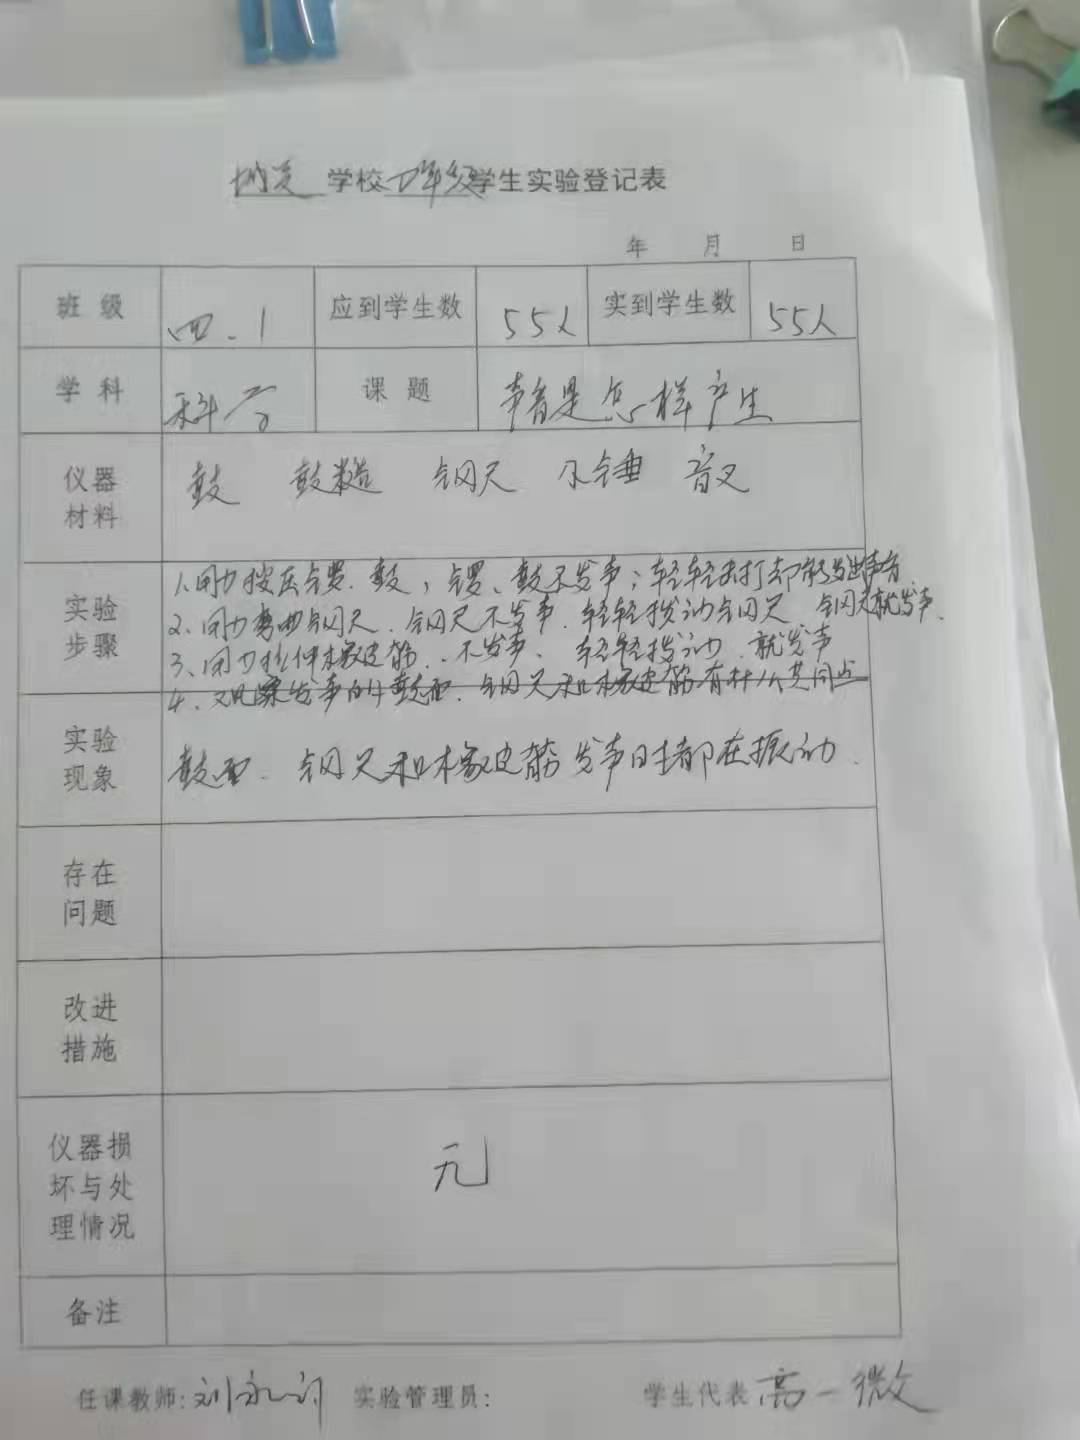 城关 学校 四年级 学生实验登记表
年 月 日
班级 四.1 应到学生数 55人 实到学生数 55人
学科 科学 课题 声音是怎样产生
仪器材料 鼓 鼓槌 钢尺 小锤 音叉
实验步骤 1.用力按压锣、鼓,锣、鼓不发声;轻轻击打却能发出声音.
2、用力弯曲钢尺、钢尺不发声.轻轻拨动钢尺 钢尺就发声.
3、用力拉伸橡皮筋..不发声、轻轻拨动.就发声
4、观察发声的鼓面.钢尺和橡皮筋有什么共同点
实验现象 鼓面.钢尺和橡皮筋发声时都在振动.
存在问题
改进措施
仪器损坏与处理情况 无
备注
任课教师:刘永 实验管理员: 学生代表 高一微